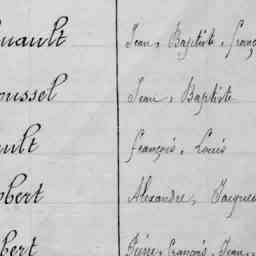 uault Jean, Baptiste, franç
oussel Jean, Baptiste
ult françois, Louis
bert Alexandre, Jacques
bert Pierre, françois, Jean,